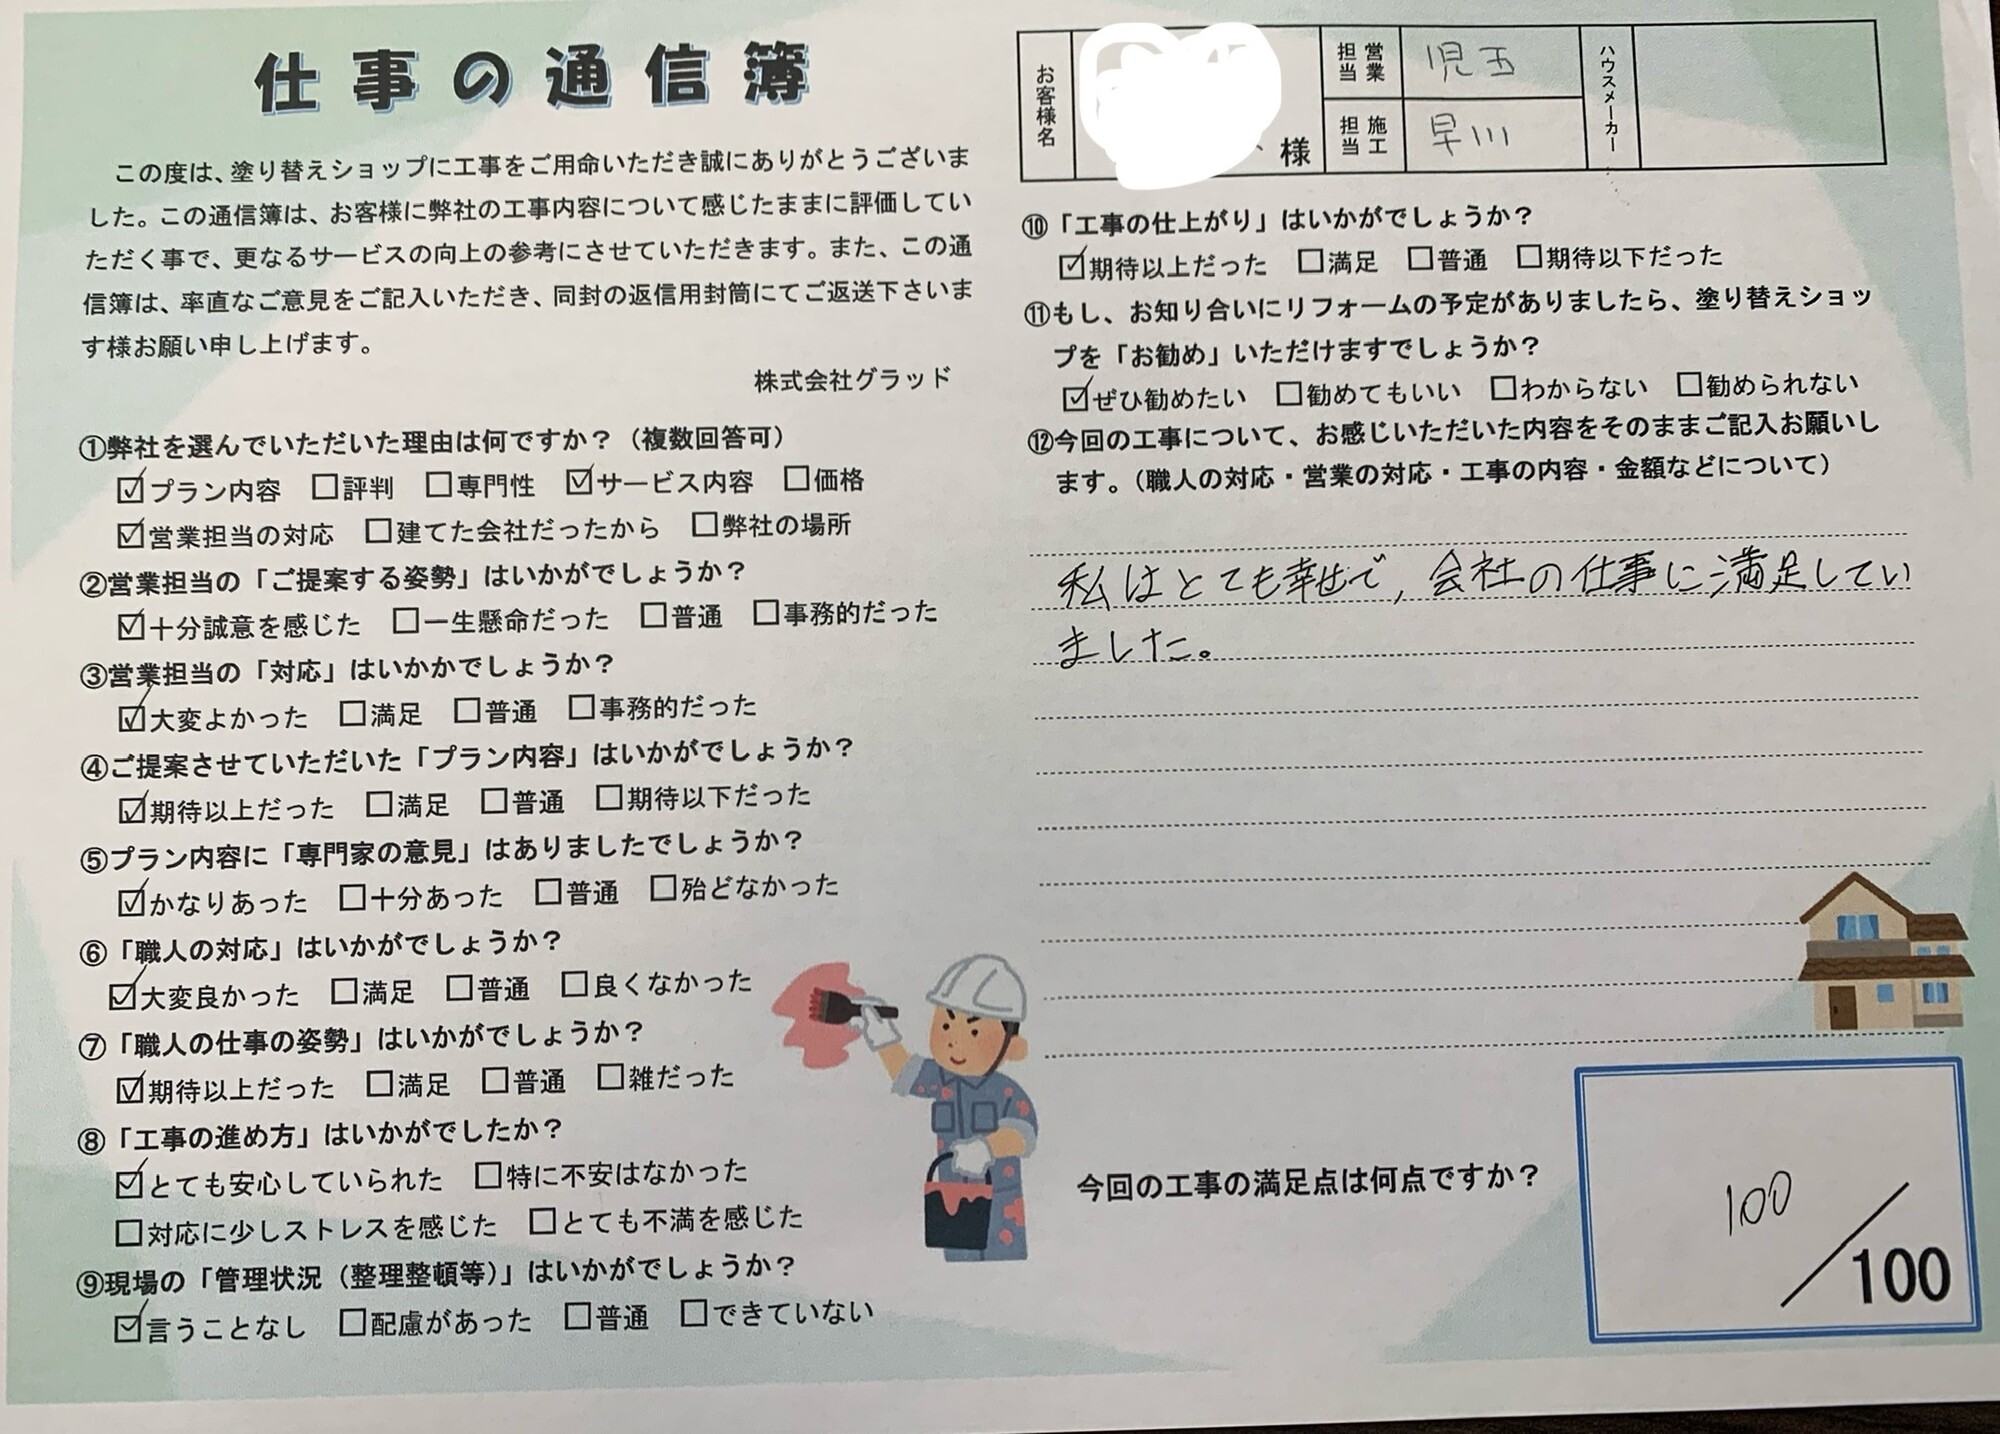 仕事の通信簿
この度は、塗り替えショップに工事をご用命いただき誠にありがとうございま
した。この通信簿は、お客様に弊社の工事内容について感じたままに評価してい
ただく事で、更なるサービスの向上の参考にさせていただきます。また、この通
信簿は、率直なご意見をご記入いただき、同封の返信用封筒にてご返送下さいま
す様お願い申し上げます。
株式会社グラッド
①弊社を選んでいただいた理由は何ですか？（複数回答可）
☑プラン内容 □評判 □専門性 ☑サービス内容 □価格
☑営業担当の対応 □建てた会社だったから □弊社の場所
②営業担当の「ご提案する姿勢」はいかがでしょうか？
☑十分誠意を感じた □一生懸命だった □普通 □事務的だった
③営業担当の「対応」はいかかでしょうか？
☑大変よかった □満足 □普通 □事務的だった
④ご提案させていただいた「プラン内容」はいかがでしょうか？
☑期待以上だった □満足 □普通 □期待以下だった
⑤プラン内容に「専門家の意見」はありましたでしょうか？
☑かなりあった □十分あった □普通 □殆どなかった
⑥「職人の対応」はいかがでしょうか？
☑大変良かった □満足 □普通 □良くなかった
⑦「職人の仕事の姿勢」はいかがでしょうか？
☑期待以上だった □満足 □普通 □雑だった
⑧「工事の進め方」はいかがでしたか？
☑とても安心していられた □特に不安はなかった
□対応に少しストレスを感じた □とても不満を感じた
⑨現場の「管理状況（整理整頓等）」はいかがでしょうか？
☑言うことなし □配慮があった □普通 □できていない
お客様名 様 営業担当 児玉 ハウスメーカー
施工担当 早川
⑩「工事の仕上がり」はいかがでしょうか？
☑期待以上だった □満足 □普通 □期待以下だった
⑪もし、お知り合いにリフォームの予定がありましたら、塗り替えショッ
プを「お勧め」いただけますでしょうか？
☑ぜひ勧めたい □勧めてもいい □わからない □勧められない
⑫今回の工事について、お感じいただいた内容をそのままご記入お願いし
ます。（職人の対応・営業の対応・工事の内容・金額などについて）
私はとても幸せで,会社の仕事に満足してい
ました。
今回の工事の満足点は何点ですか？
100/100